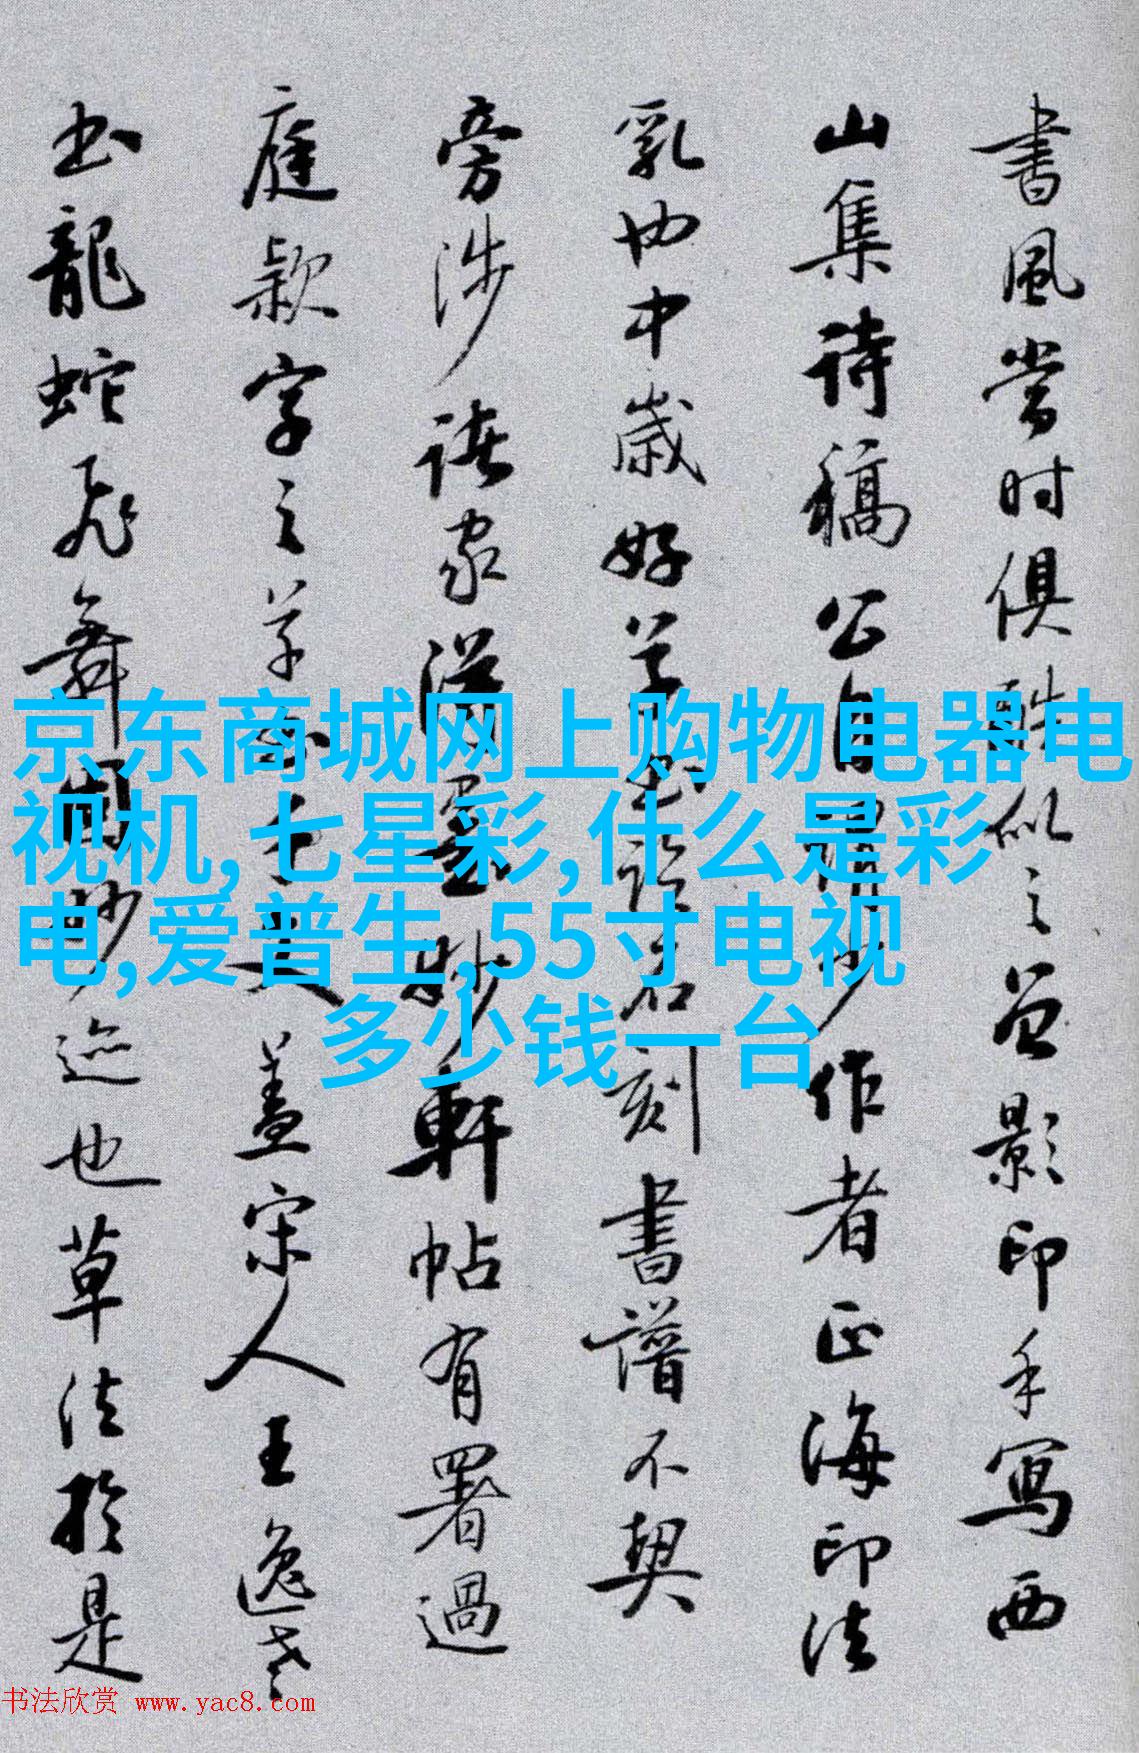 書風當时俱酷似之曾影印手寫西
山集詩稿公自
作者正海印法
乳也中歲好
刻書譜不契
旁涉諸家
軒帖有署過
庭款字之草
蓋宋人王逸老
書龍蛇飛舞
迹也草法於是
京东商城网上购物电器电
视机,七星彩,什么是彩
电,爱普生,55寸电视
多少钱一台
书法欣赏 www.yac8.com